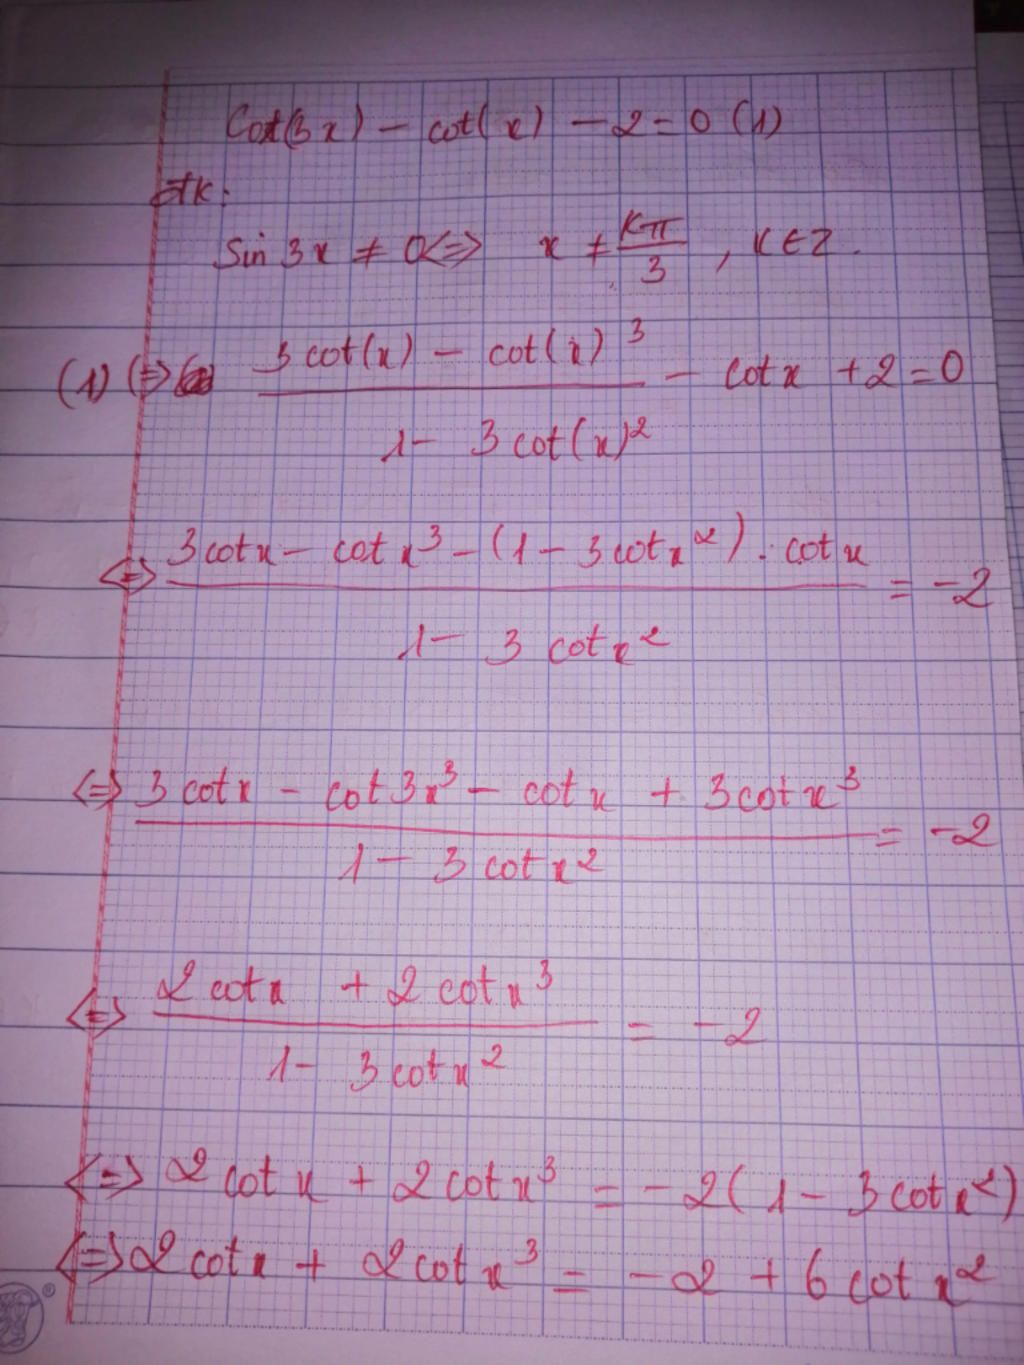 Cot(3x) - cot(x) - 2 = 0 (1)
đk:
Sin 3x ≠ 0 <=> x ≠ kπ/3 , k ∈ Z.
(1) <=> (3cot(x) - cot(x)³)/(1 - 3cot(x)²) - cotx + 2 = 0
<=> (3cotx - cotx³ - (1 - 3cotx²).cotx)/(1 - 3cotx²) = -2
<=> (3cotx - cot3x³ - cotx + 3cotx³)/(1 - 3cotx²) = -2
<=> (2cotx + 2cotx³)/(1 - 3cotx²) = -2
<=> 2cotx + 2cotx³ = -2(1 - 3cotx²)
<=> 2cotx + 2cotx³ = -2 + 6cotx²